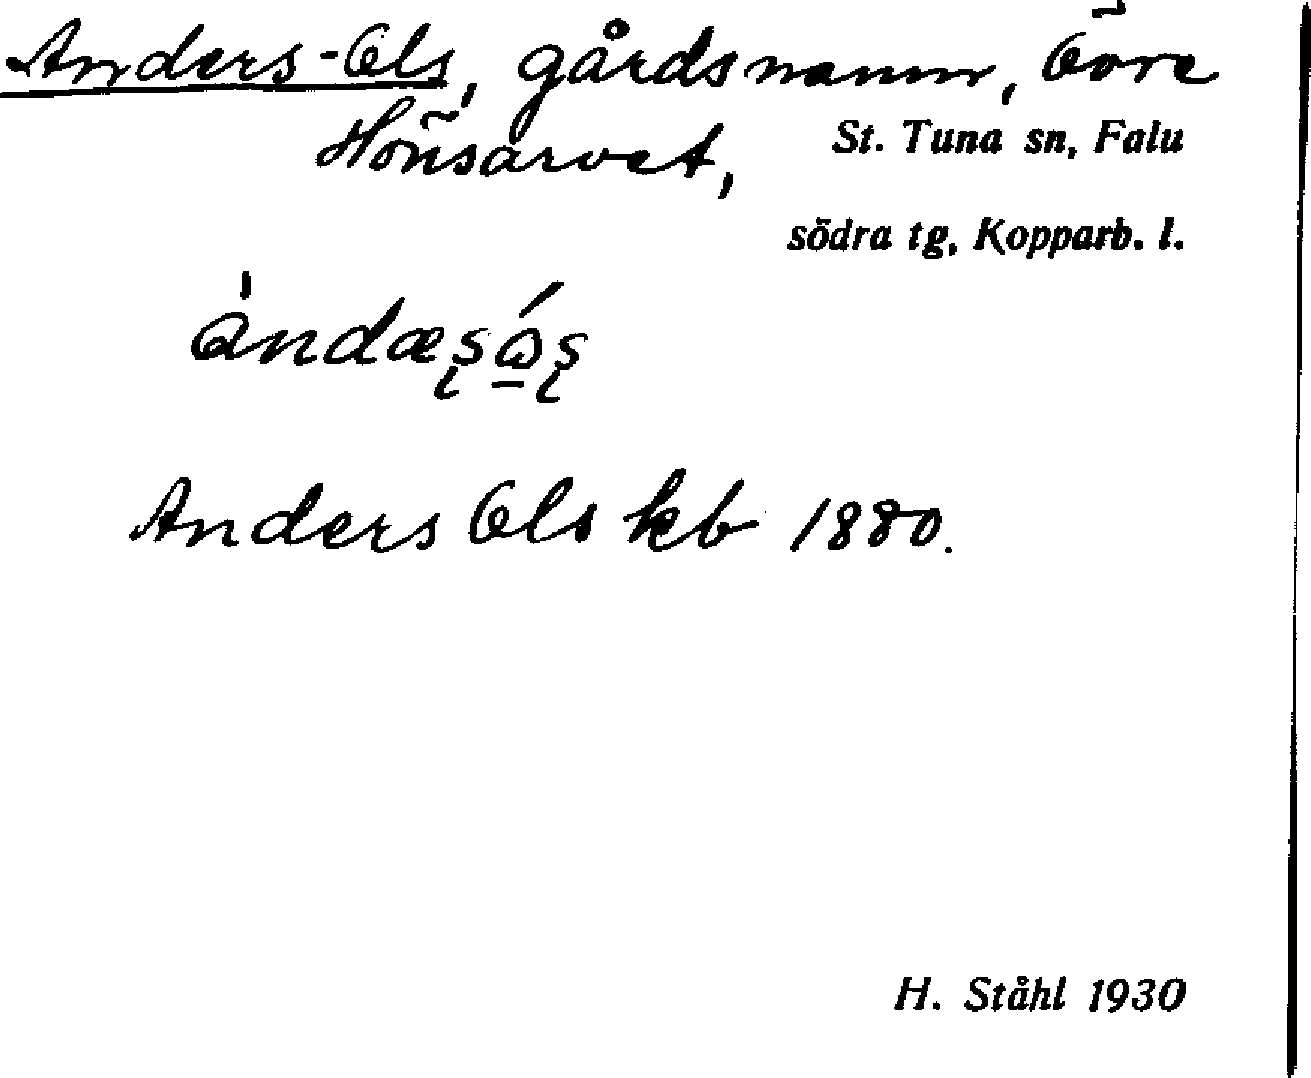 Anders-Ols, gårdsnamn, Övre
Hönsarvet, St. Tuna sn, Falu
södra tg, Kopparb. l.
Anders Ols kb 1880.
H. Ståhl 1930